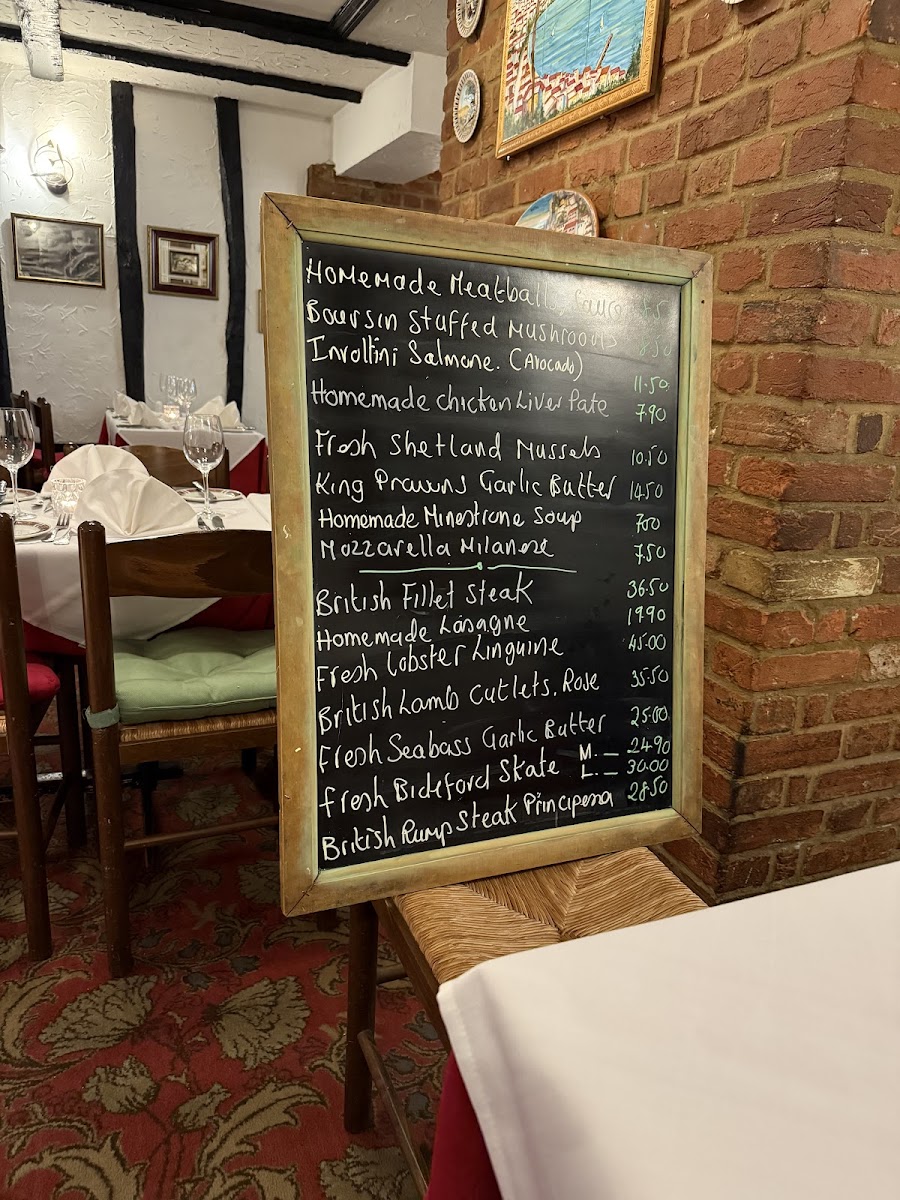 Homemade Meatballs, Sauce
Boursin Stuffed Mushrooms 8.50
Involtini Salmone. (Avocado) 11.50
Homemade chicken Liver Pate 7.90
Fresh Shetland Mussels 10.50
King Prawns Garlic Butter 14.50
Homemade Minestrone Soup 7.00
Mozzarella Milanese 7.50
British Fillet Steak 36.50
Homemade Lasagne 17.90
Fresh Lobster Linguine 45.00
British Lamb Cutlets, Rose 35.50
Fresh Seabass Garlic Butter 25.00
Fresh Bideford Skate M. — 24.90
L. — 30.00
British Rump Steak Principessa 28.50